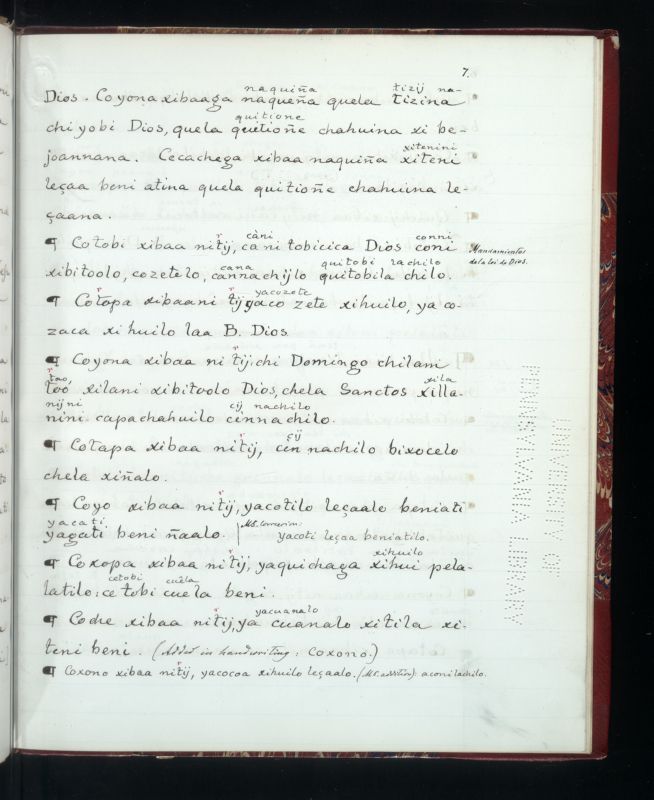 7.
naquiña tizij na-
Dios. Coyona xibaaga naqueña quela tizina
quitione
chiyobi Dios, quela quitioñe chahuina xi be-
xitenini
joannana. Cecachega xibaa naquiña xiteni
leçaa beni atina quela quitioñe chahuina le-
çaana.
r càni conni
¶ Cotobi xibaa nitij, cani tobicica Dios coni
Mandamientos
de la lei de Dios.
cana quitobi lachilo
xibitoolo, cozetelo, cannachijlo quitobila chilo.
r r yacozete
¶ Cotopa xibaani tijyaco zete xihuilo, yaco-
zaca xihuilo laa B. Dios
r
¶ Coyona xibaa ni tij, chi Domingo chilani
too xila
tòó xilani xibitoolo Dios, chela Sanctos xilla-
nijni cij nachilo
nini. capachahuilo cinnachilo.
r çij
¶ Cotapa xibaa nitij, cin nachilo bixocelo
chela xiñalo.
r
¶ Coyo xibaa nitij, yacotilo leçaalo beniati
yacati
yagati beni ñaalo. MS. correction:
yacoti leçaa beniatilo.
r xihuilo
¶ Coxopa xibaa nitij, yaquichaga xihui pela-
cetobi cuêla
latilo. ce tobi cuela beni.
r yacuanalo
¶ Coche xibaa nitij, ya cuanalo xitila xi-
teni beni. (Added in handwriting: coxono.)
r
¶ Coxono xibaa nitij, yacocoa xihuilo leçaalo. (MS. addition): aconilachilo.
UNIVERSITY OF
PENNSYLVANIA LIBRARY